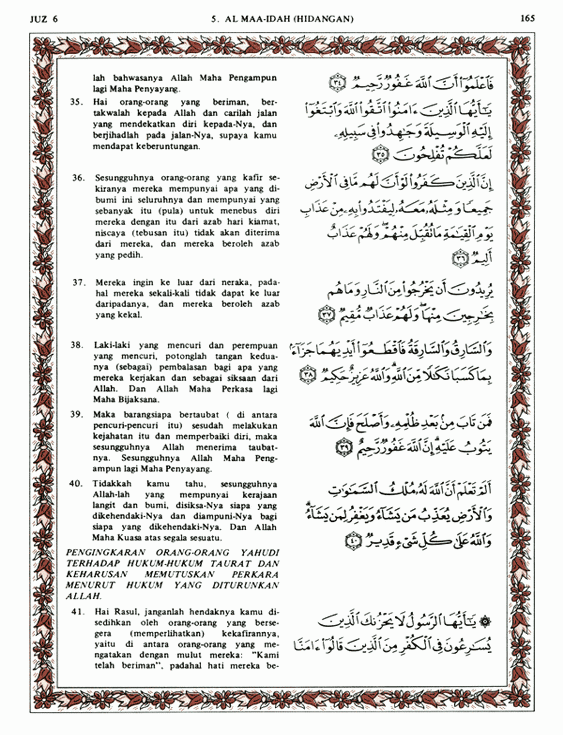 JUZ 6
5. AL MAA-IDAH (HIDANGAN)
165
lah bahwasanya Allah Maha Pengampun
lagi Maha Penyayang.
35. Hai orang-orang yang beriman, ber-
takwalah kepada Allah dan carilah jalan
yang mendekatkan diri kepada-Nya, dan
berjihadlah pada jalan-Nya, supaya kamu
mendapat keberuntungan.
36. Sesungguhnya orang-orang yang kafir se-
kiranya mereka mempunyai apa yang di-
bumi ini seluruhnya dan mempunyai yang
sebanyak itu (pula) untuk menebus diri
mereka dengan itu dari azab hari kiamat,
niscaya (tebusan itu) tidak akan diterima
dari mereka, dan mereka beroleh azab
yang pedih.
37. Mereka ingin ke luar dari neraka, pada-
hal mereka sekali-kali tidak dapat ke luar
daripadanya, dan mereka beroleh azab
yang kekal.
38. Laki-laki yang mencuri dan perempuan
yang mencuri, potonglah tangan kedua-
nya (sebagai) pembalasan bagi apa yang
mereka kerjakan dan sebagai siksaan dari
Allah. Dan Allah Maha Perkasa lagi
Maha Bijaksana.
39. Maka barangsiapa bertaubat ( di antara
pencuri-pencuri itu) sesudah melakukan
kejahatan itu dan memperbaiki diri, maka
sesungguhnya Allah menerima taubat-
nya. Sesungguhnya Allah Maha Peng-
ampun lagi Maha Penyayang.
40. Tidakkah kamu tahu, sesungguhnya
Allah-lah yang mempunyai kerajaan
langit dan bumi, disiksa-Nya siapa yang
dikehendaki-Nya dan diampuni-Nya bagi
siapa yang dikehendaki-Nya. Dan Allah
Maha Kuasa atas segala sesuatu.
PENGINGKARAN ORANG-ORANG YAHUDI
TERHADAP HUKUM-HUKUM TAURAT DAN
KEHARUSAN MEMUTUSKAN PERKARA
MENURUT HUKUM YANG DITURUNKAN
ALLAH.
41. Hai Rasul, janganlah hendaknya kamu di-
sedihkan oleh orang-orang yang berse-
gera (memperlihatkan) kekafirannya,
yaitu di antara orang-orang yang me-
ngatakan dengan mulut mereka: "Kami
telah beriman", padahal hati mereka be-
فَاعْلَمُوٓا۟ أَنَّ ٱللَّهَ غَفُورٌ رَّحِيمٌ ٣٤
يَٰٓأَيُّهَا ٱلَّذِينَ ءَامَنُوا۟ ٱتَّقُوا۟ ٱللَّهَ وَٱبْتَغُوٓا۟
إِلَيْهِ ٱلْوَسِيلَةَ وَجَٰهِدُوا۟ فِى سَبِيلِهِۦ
لَعَلَّكُمْ تُفْلِحُونَ ٣٥
إِنَّ ٱلَّذِينَ كَفَرُوا۟ لَوْ أَنَّ لَهُم مَّا فِى ٱلْأَرْضِ
جَمِيعًا وَمِثْلَهُۥ مَعَهُۥ لِيَفْتَدُوا۟ بِهِۦ مِنْ عَذَابِ
يَوْمِ ٱلْقِيَٰمَةِ مَا تُقُبِّلَ مِنْهُمْ وَلَهُمْ عَذَابٌ
أَلِيمٌ ٣٦
يُرِيدُونَ أَن يَخْرُجُوا۟ مِنَ ٱلنَّارِ وَمَا هُم
بِخَٰرِجِينَ مِنْهَا وَلَهُمْ عَذَابٌ مُّقِيمٌ ٣٧
وَٱلسَّارِقُ وَٱلسَّارِقَةُ فَٱقْطَعُوٓا۟ أَيْدِيَهُمَا جَزَآءًۢ
بِمَا كَسَبَا نَكَٰلًا مِّنَ ٱللَّهِ وَٱللَّهُ عَزِيزٌ حَكِيمٌ ٣٨
فَمَن تَابَ مِنۢ بَعْدِ ظُلْمِهِۦ وَأَصْلَحَ فَإِنَّ ٱللَّهَ
يَتُوبُ عَلَيْهِ إِنَّ ٱللَّهَ غَفُورٌ رَّحِيمٌ ٣٩
أَلَمْ تَعْلَمْ أَنَّ ٱللَّهَ لَهُۥ مُلْكُ ٱلسَّمَٰوَٰتِ
وَٱلْأَرْضِ يُعَذِّبُ مَن يَشَآءُ وَيَغْفِرُ لِمَن يَشَآءُ
وَٱللَّهُ عَلَىٰ كُلِّ شَىْءٍ قَدِيرٌ ٤٠
۞ يَٰٓأَيُّهَا ٱلرَّسُولُ لَا يَحْزُنكَ ٱلَّذِينَ
يُسَٰرِعُونَ فِى ٱلْكُفْرِ مِنَ ٱلَّذِينَ قَالُوٓا۟ ءَامَنَّا